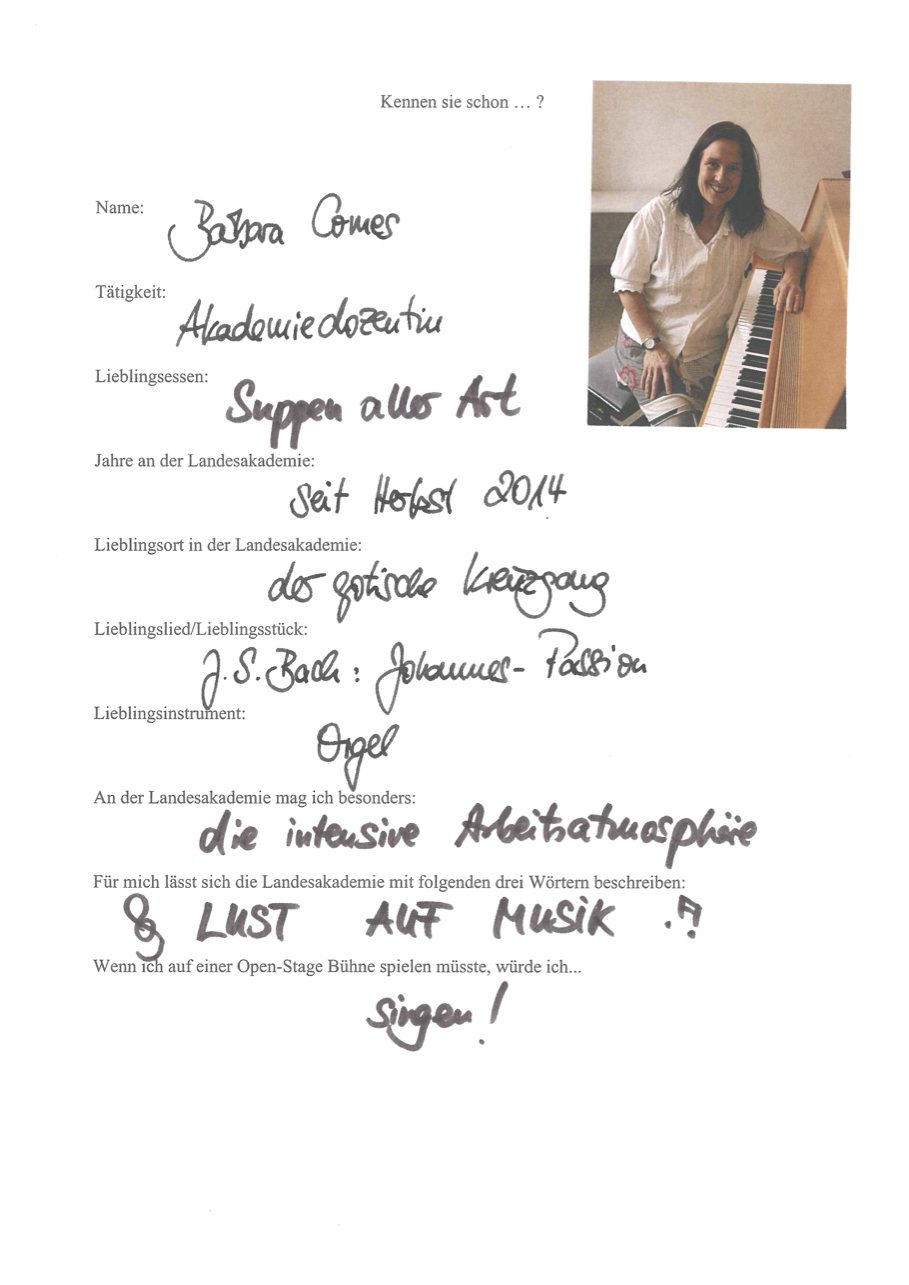 Kennen sie schon … ?
Name:
Barbara Comes
Tätigkeit:
Akademiedozentin
Lieblingsessen:
Suppen aller Art
Jahre an der Landesakademie:
seit Herbst 2014
Lieblingsort in der Landesakademie:
der gotische Kreuzgang
Lieblingslied/Lieblingsstück:
J.S. Bach: Johannes-Passion
Lieblingsinstrument:
Orgel
An der Landesakademie mag ich besonders:
die intensive Arbeitsatmosphäre
Für mich lässt sich die Landesakademie mit folgenden drei Wörtern beschreiben:
LUST AUF MUSIK
Wenn ich auf einer Open-Stage Bühne spielen müsste, würde ich...
singen!